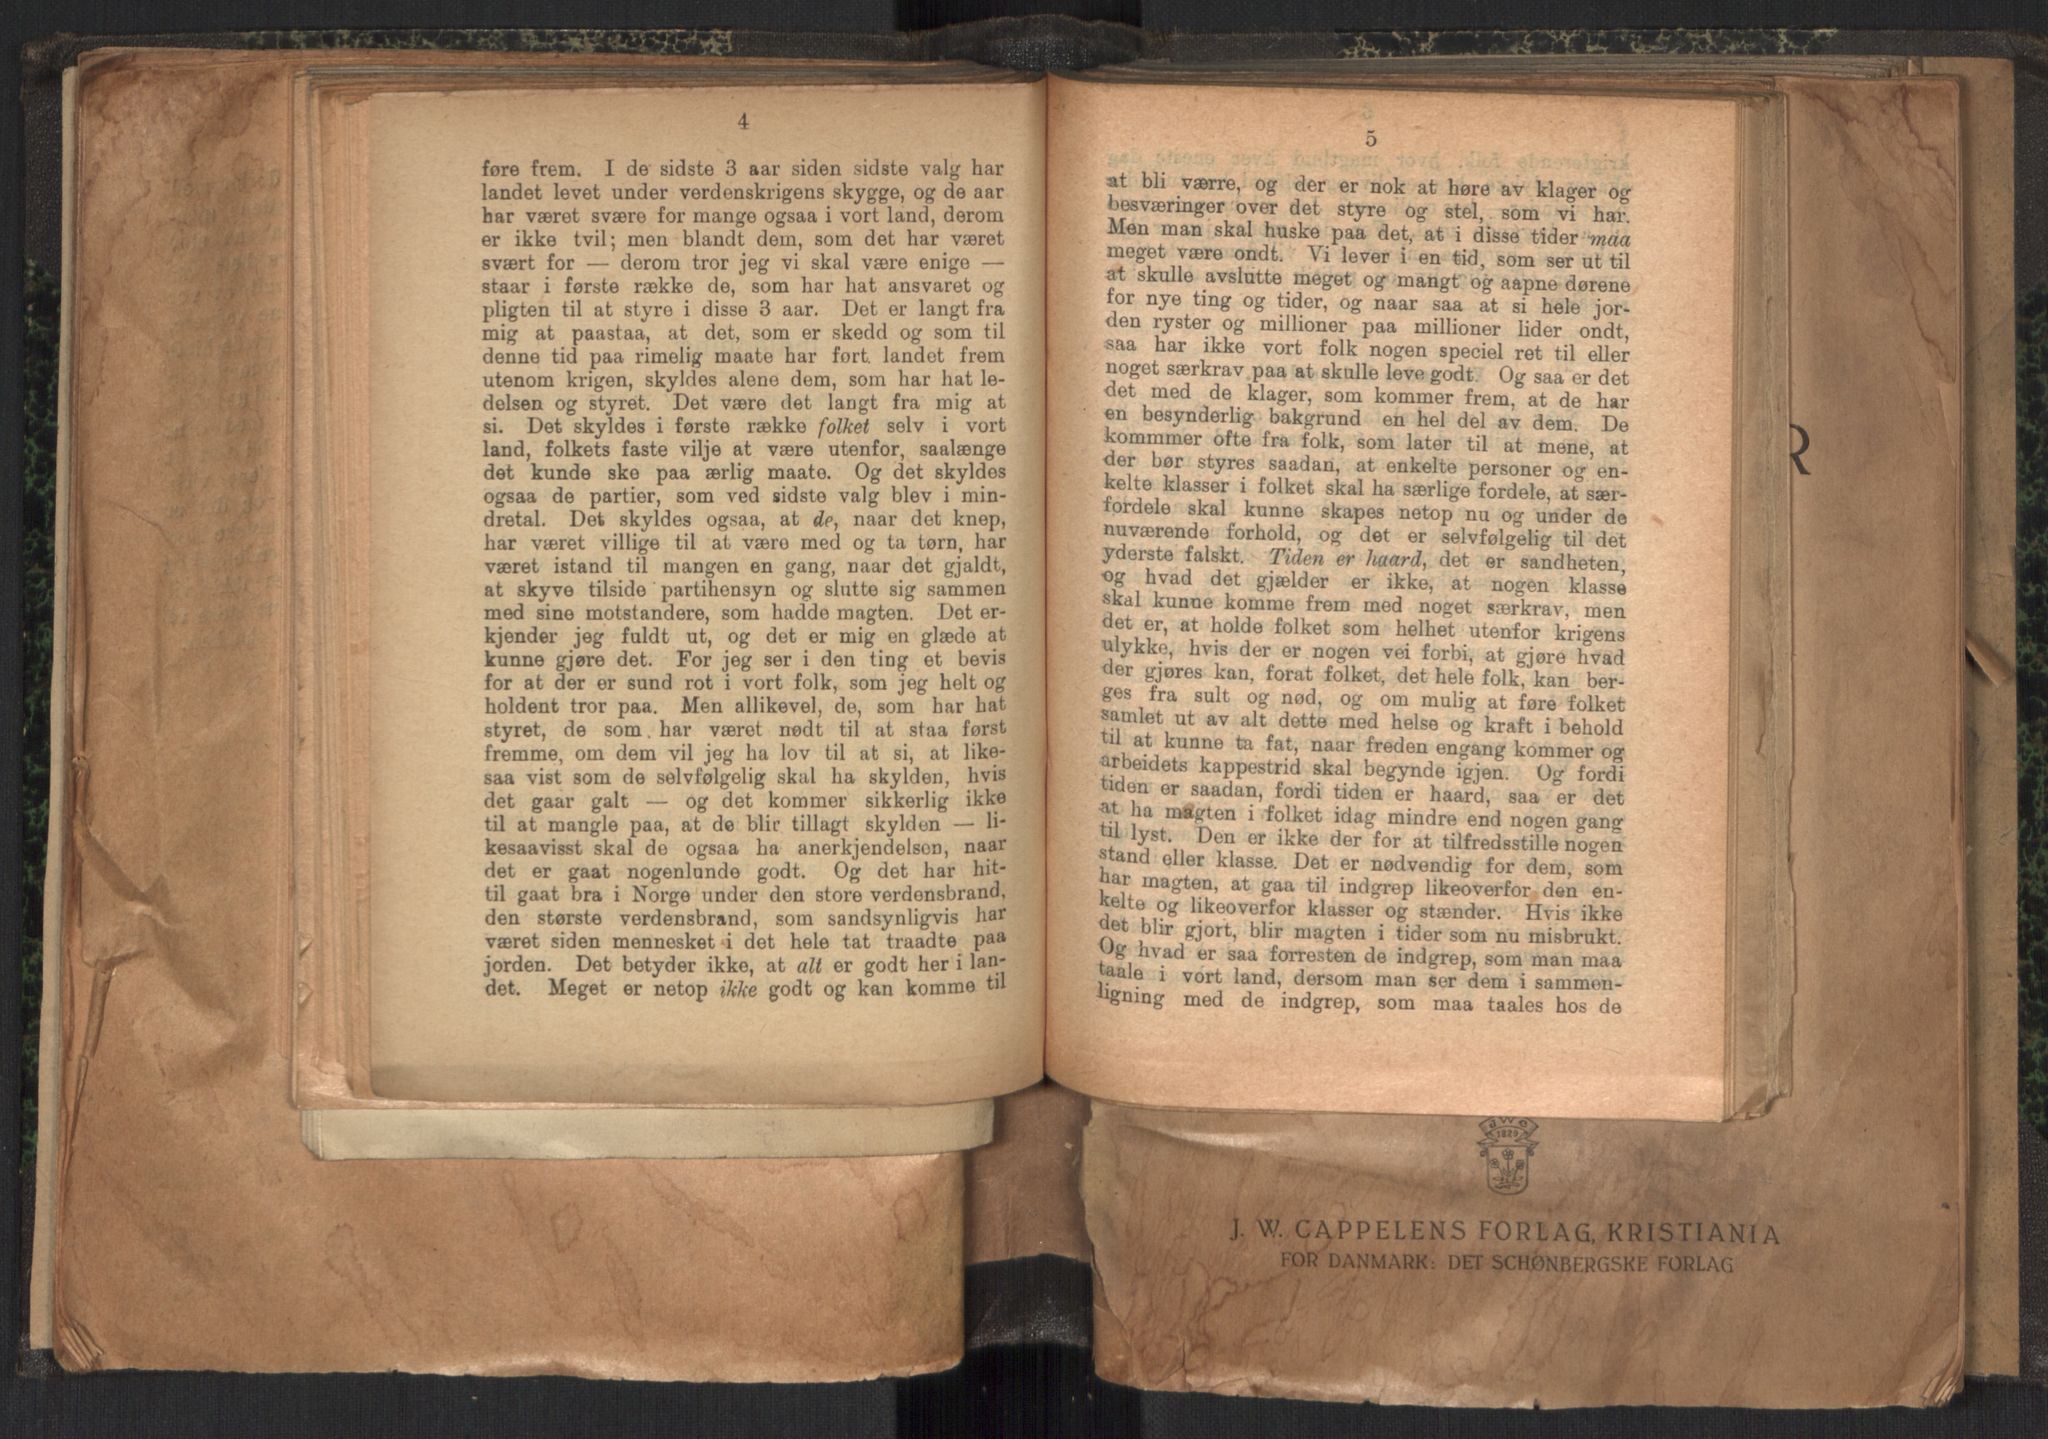 4
føre frem. I de sidste 3 aar siden sidste valg har
landet levet under verdenskrigens skygge, og de aar
har været svære for mange ogsaa i vort land, derom
er ikke tvil; men blandt dem, som det har været
svært for — derom tror jeg vi skal være enige —
staar i første række de, som har hat ansvaret og
pligten til at styre i disse 3 aar. Det er langt fra
mig at paastaa, at det, som er skedd og som til
denne tid paa rimelig maate har ført landet frem
utenom krigen, skyldes alene dem, som har hat le-
delsen og styret. Det være det langt fra mig at
si. Det skyldes i første række folket selv i vort
land, folkets faste vilje at være utenfor, saalænge
det kunde ske paa ærlig maate. Og det skyldes
ogsaa de partier, som ved sidste valg blev i min-
dretal. Det skyldes ogsaa, at de, naar det knep,
har været villige til at være med og ta tørn, har
været istand til mangen en gang, naar det gjaldt,
at skyve tilside partihensyn og slutte sig sammen
med sine motstandere, som hadde magten. Det er-
kjender jeg fuldt ut, og det er mig en glæde at
kunne gjøre det. For jeg ser i den ting et bevis
for at der er sund rot i vort folk, som jeg helt og
holdent tror paa. Men allikevel, de, som har hat
styret, de som har været nødt til at staa først
fremme, om dem vil jeg ha lov til at si, at like-
saa vist som de selvfølgelig skal ha skylden, hvis
det gaar galt — og det kommer sikkerlig ikke
til at mangle paa, at de blir tillagt skylden — li-
kesaavisst skal de ogsaa ha anerkjendelsen, naar
det er gaat nogenlunde godt. Og det har hit-
til gaat bra i Norge under den store verdensbrand,
den største verdensbrand, som sandsynligvis har
været siden mennesket i det hele tat traadte paa
jorden. Det betyder ikke, at alt er godt her i lan-
det. Meget er netop ikke godt og kan komme til
5
at bli værre, og der er nok at høre av klager og
besværinger over det styre og stel, som vi har.
Men man skal huske paa det, at i disse tider maa
meget være ondt. Vi lever i en tid, som ser ut til
at skulle avslutte meget og mangt og aapne dørene
for nye ting og tider, og naar saa at si hele jor-
den ryster og millioner paa millioner lider ondt,
saa har ikke vort folk nogen speciel ret til eller
noget særkrav paa at skulle leve godt. Og saa er det
det med de klager, som kommer frem, at de har
en besynderlig bakgrund en hel del av dem. De
kommmer ofte fra folk, som later til at mene, at
der bør styres saadan, at enkelte personer og en-
kelte klasser i folket skal ha særlige fordele, at sær-
fordele skal kunne skapes netop nu og under de
nuværende forhold, og det er selvfølgelig til det
yderste falskt. Tiden er haard, det er sandheten,
og hvad det gjælder er ikke, at nogen klasse
skal kunne komme frem med noget særkrav, men
det er, at holde folket som helhet utenfor krigens
ulykke, hvis der er nogen vei forbi, at gjøre hvad
der gjøres kan, forat folket, det hele folk, kan ber-
ges fra sult og nød, og om mulig at føre folket
samlet ut av alt dette med helse og kraft i behold
til at kunne ta fat, naar freden engang kommer og
arbeidets kappestrid skal begynde igjen. Og fordi
tiden er saadan, fordi tiden er haard, saa er det
at ha magten i folket idag mindre end nogen gang
til lyst. Den er ikke der for at tilfredsstille nogen
stand eller klasse. Det er nødvendig for dem, som
har magten, at gaa til indgrep likeoverfor den en-
kelte og likeoverfor klasser og stænder. Hvis ikke
det blir gjort, blir magten i tider som nu misbrukt.
Og hvad er saa forresten de indgrep, som man maa
taale i vort land, dersom man ser dem i sammen-
ligning med de indgrep, som maa taales hos de
R
JWC
1829
J. W. CAPPELENS FORLAG, KRISTIANIA
FOR DANMARK: DET SCHØNBERGSKE FORLAG